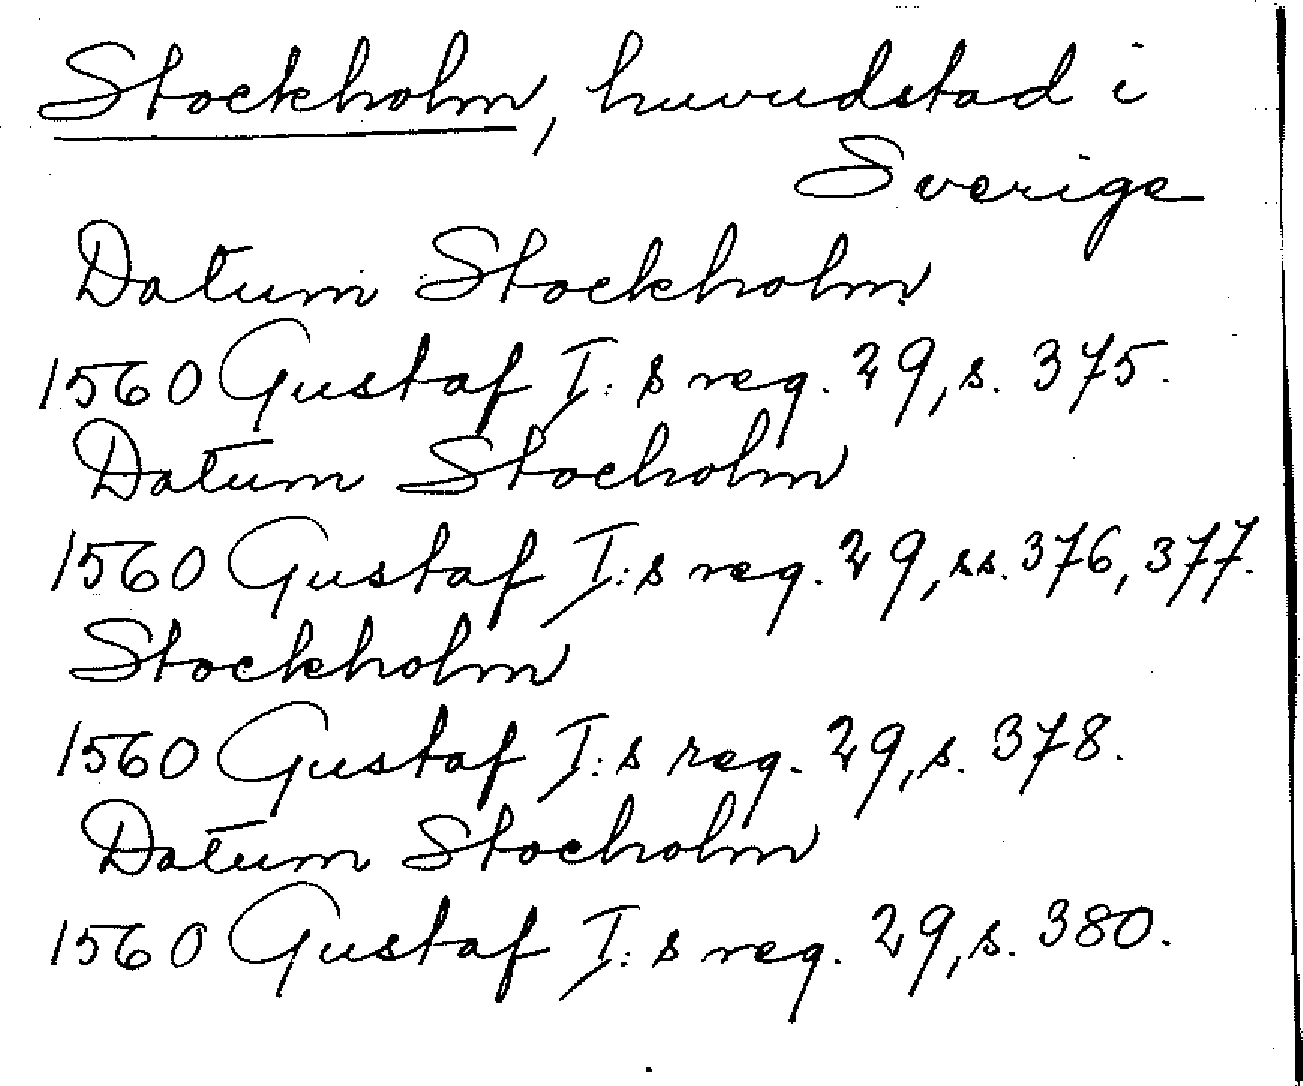 Stockholm, huvudstad i
Sverige
Datum Stockholm
1560 Gustaf I:s reg. 29, s. 375.
Datum Stocholm
1560 Gustaf I:s reg. 29, ss. 376, 377.
Stockholm
1560 Gustaf I:s reg. 29, s. 378.
Datum Stocholm
1560 Gustaf I:s reg. 29, s. 380.